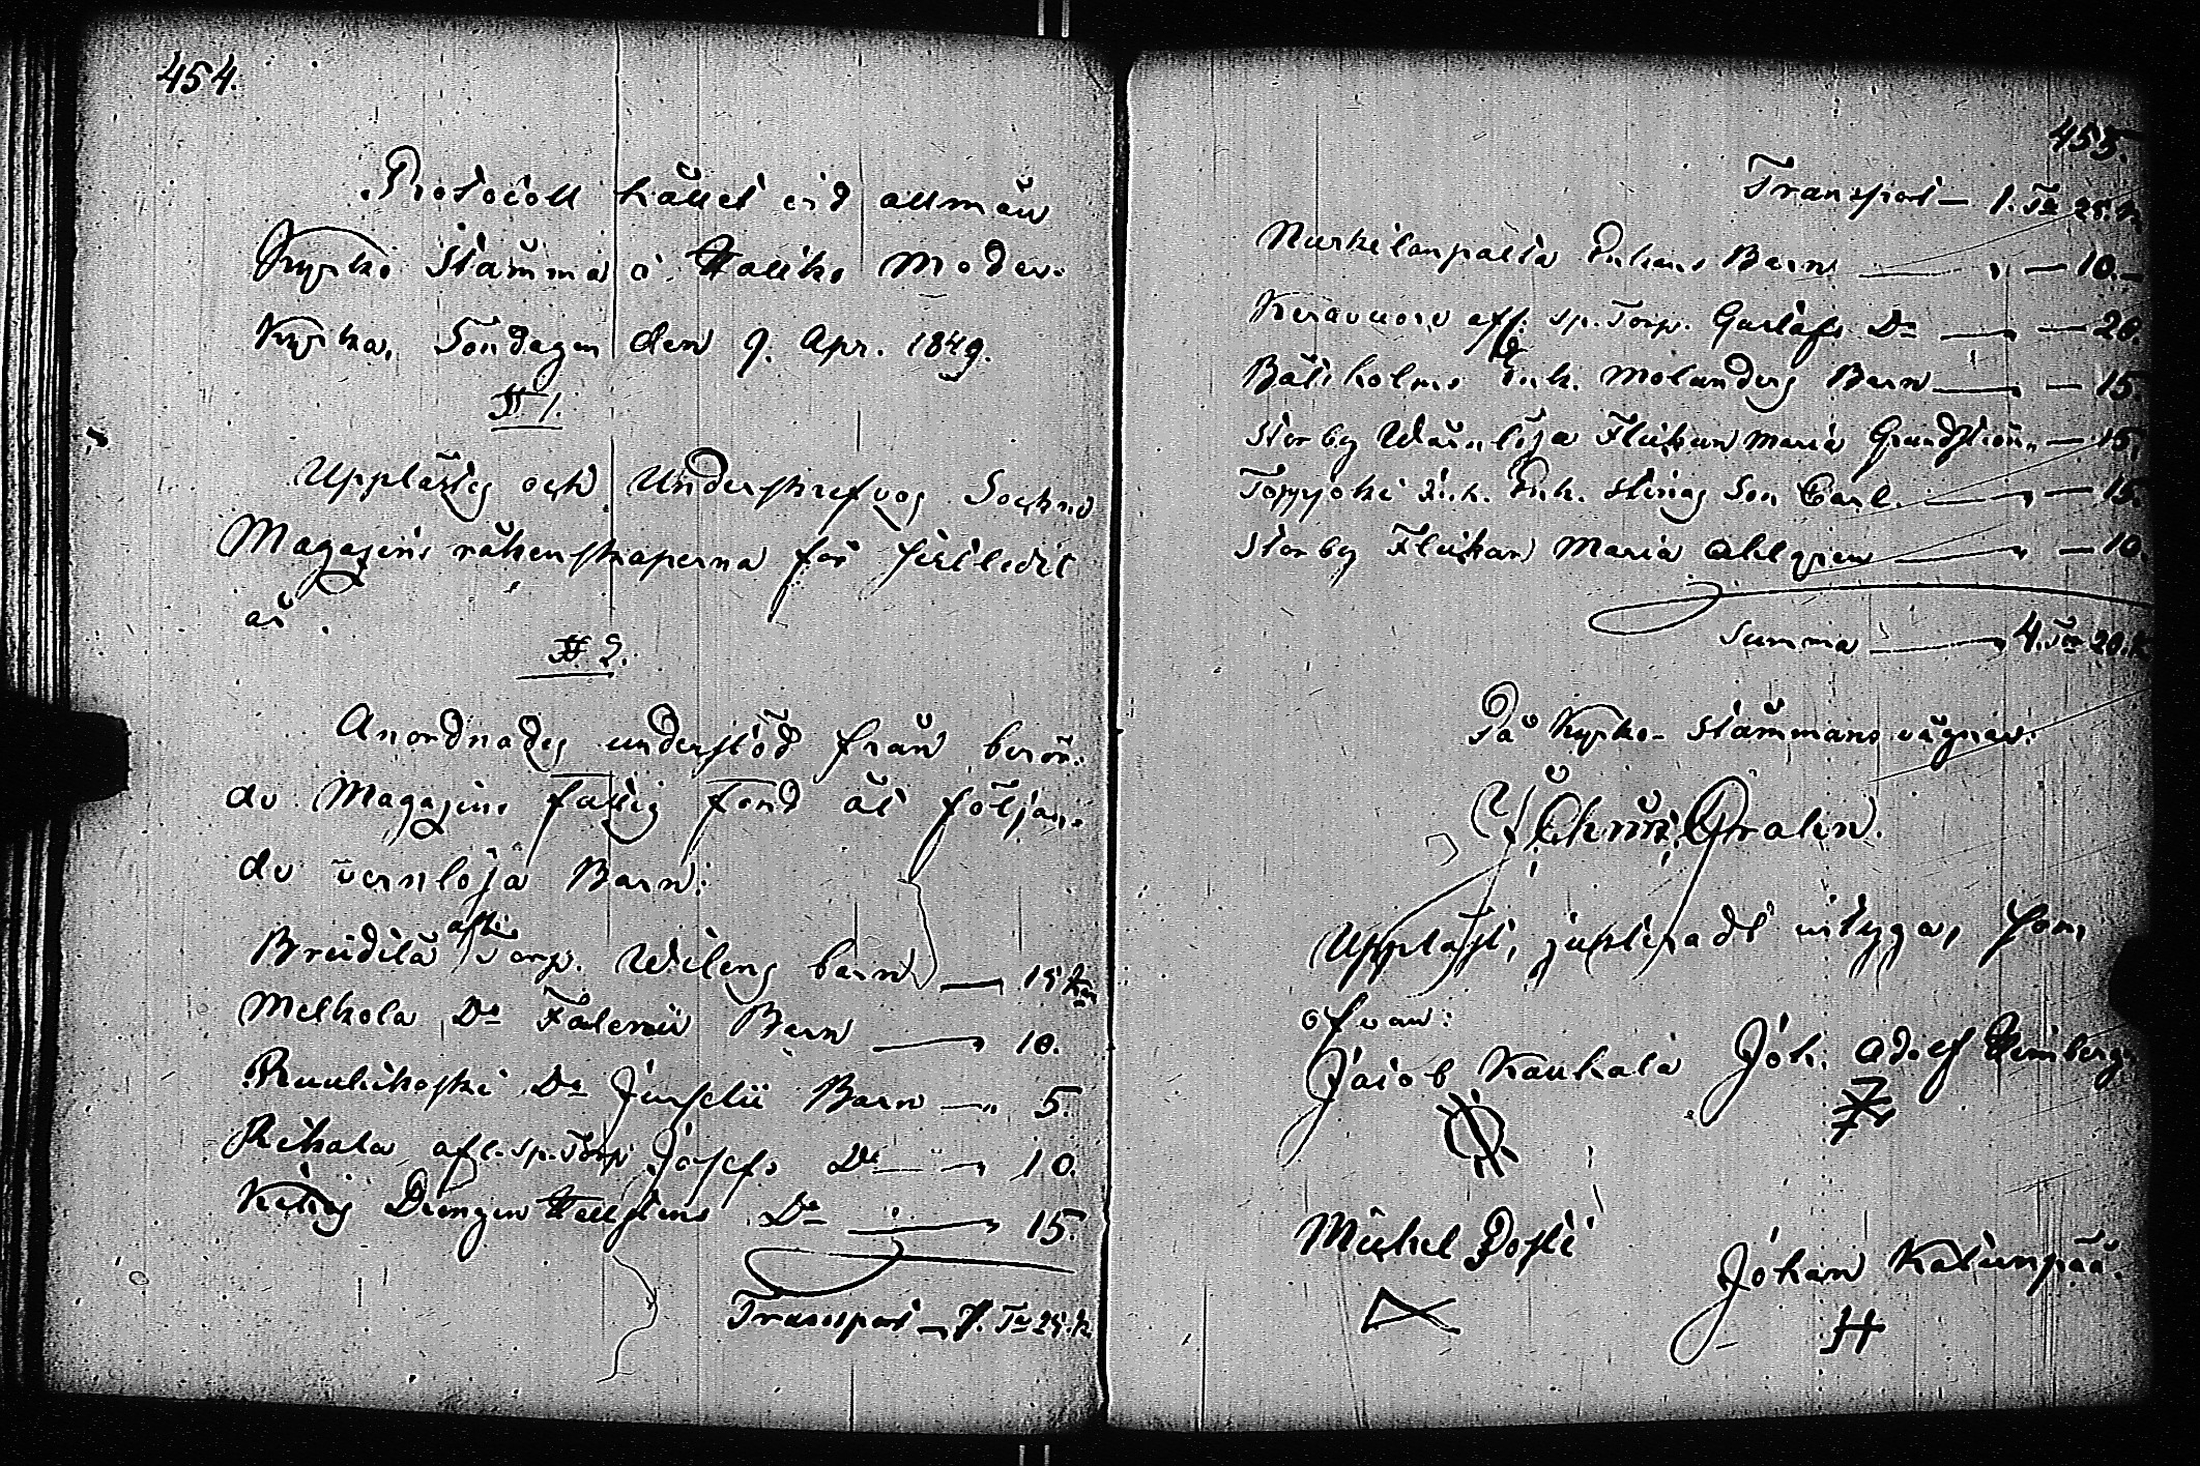 454.
Protocoll hållet vid allmän
Kyrko Stämma i Haliko Moder-
Kyrka, Söndagen den 9. Apr. 1849.
§ 1.
Upplästes och Underskrefvos Sockne
Magazins räkenskaperna för förledit
år.
§ 2.
Anordnades understöd från berör-
de Magazins fattig fond åt följan-
de vernlösa Barn:
aflr
Breidilä Torp. Wilens barn — 15 kan
Melkola Do Falenii Barn — 10.
Ruulikoski Do Junselii Barn — 5.
Rekala afl. sp. Torp Josefs Do — 10.
Ketos Drengen Hellstens Do — 15.
Transport — 1. Ta 25. k
455.
Transport — 1. Ta 25. k
Nurkilanpalta Enkans Barn — " — 10. —
Keravuori afl. sp. Torp. Gustafs Do — — 20.
Båtsholms Enk. Molanders Barn — — 15
Storby Wärnlösa Flickan Maria Grundström — 15.
Toppjoki Enk. Stinas Son Carl. — — 15.
Storby Flickan Maria Ahlgren — — 10.
Summa — 4. Tor 20. k
På Kyrko-Stämmans vägnar.
Grahn.
Uppläst, justeradt intyga, Som
ofvan:
Jacob Kaukala Joh. Adolf Heimberg
Michel Posti
Johan Katinpää.